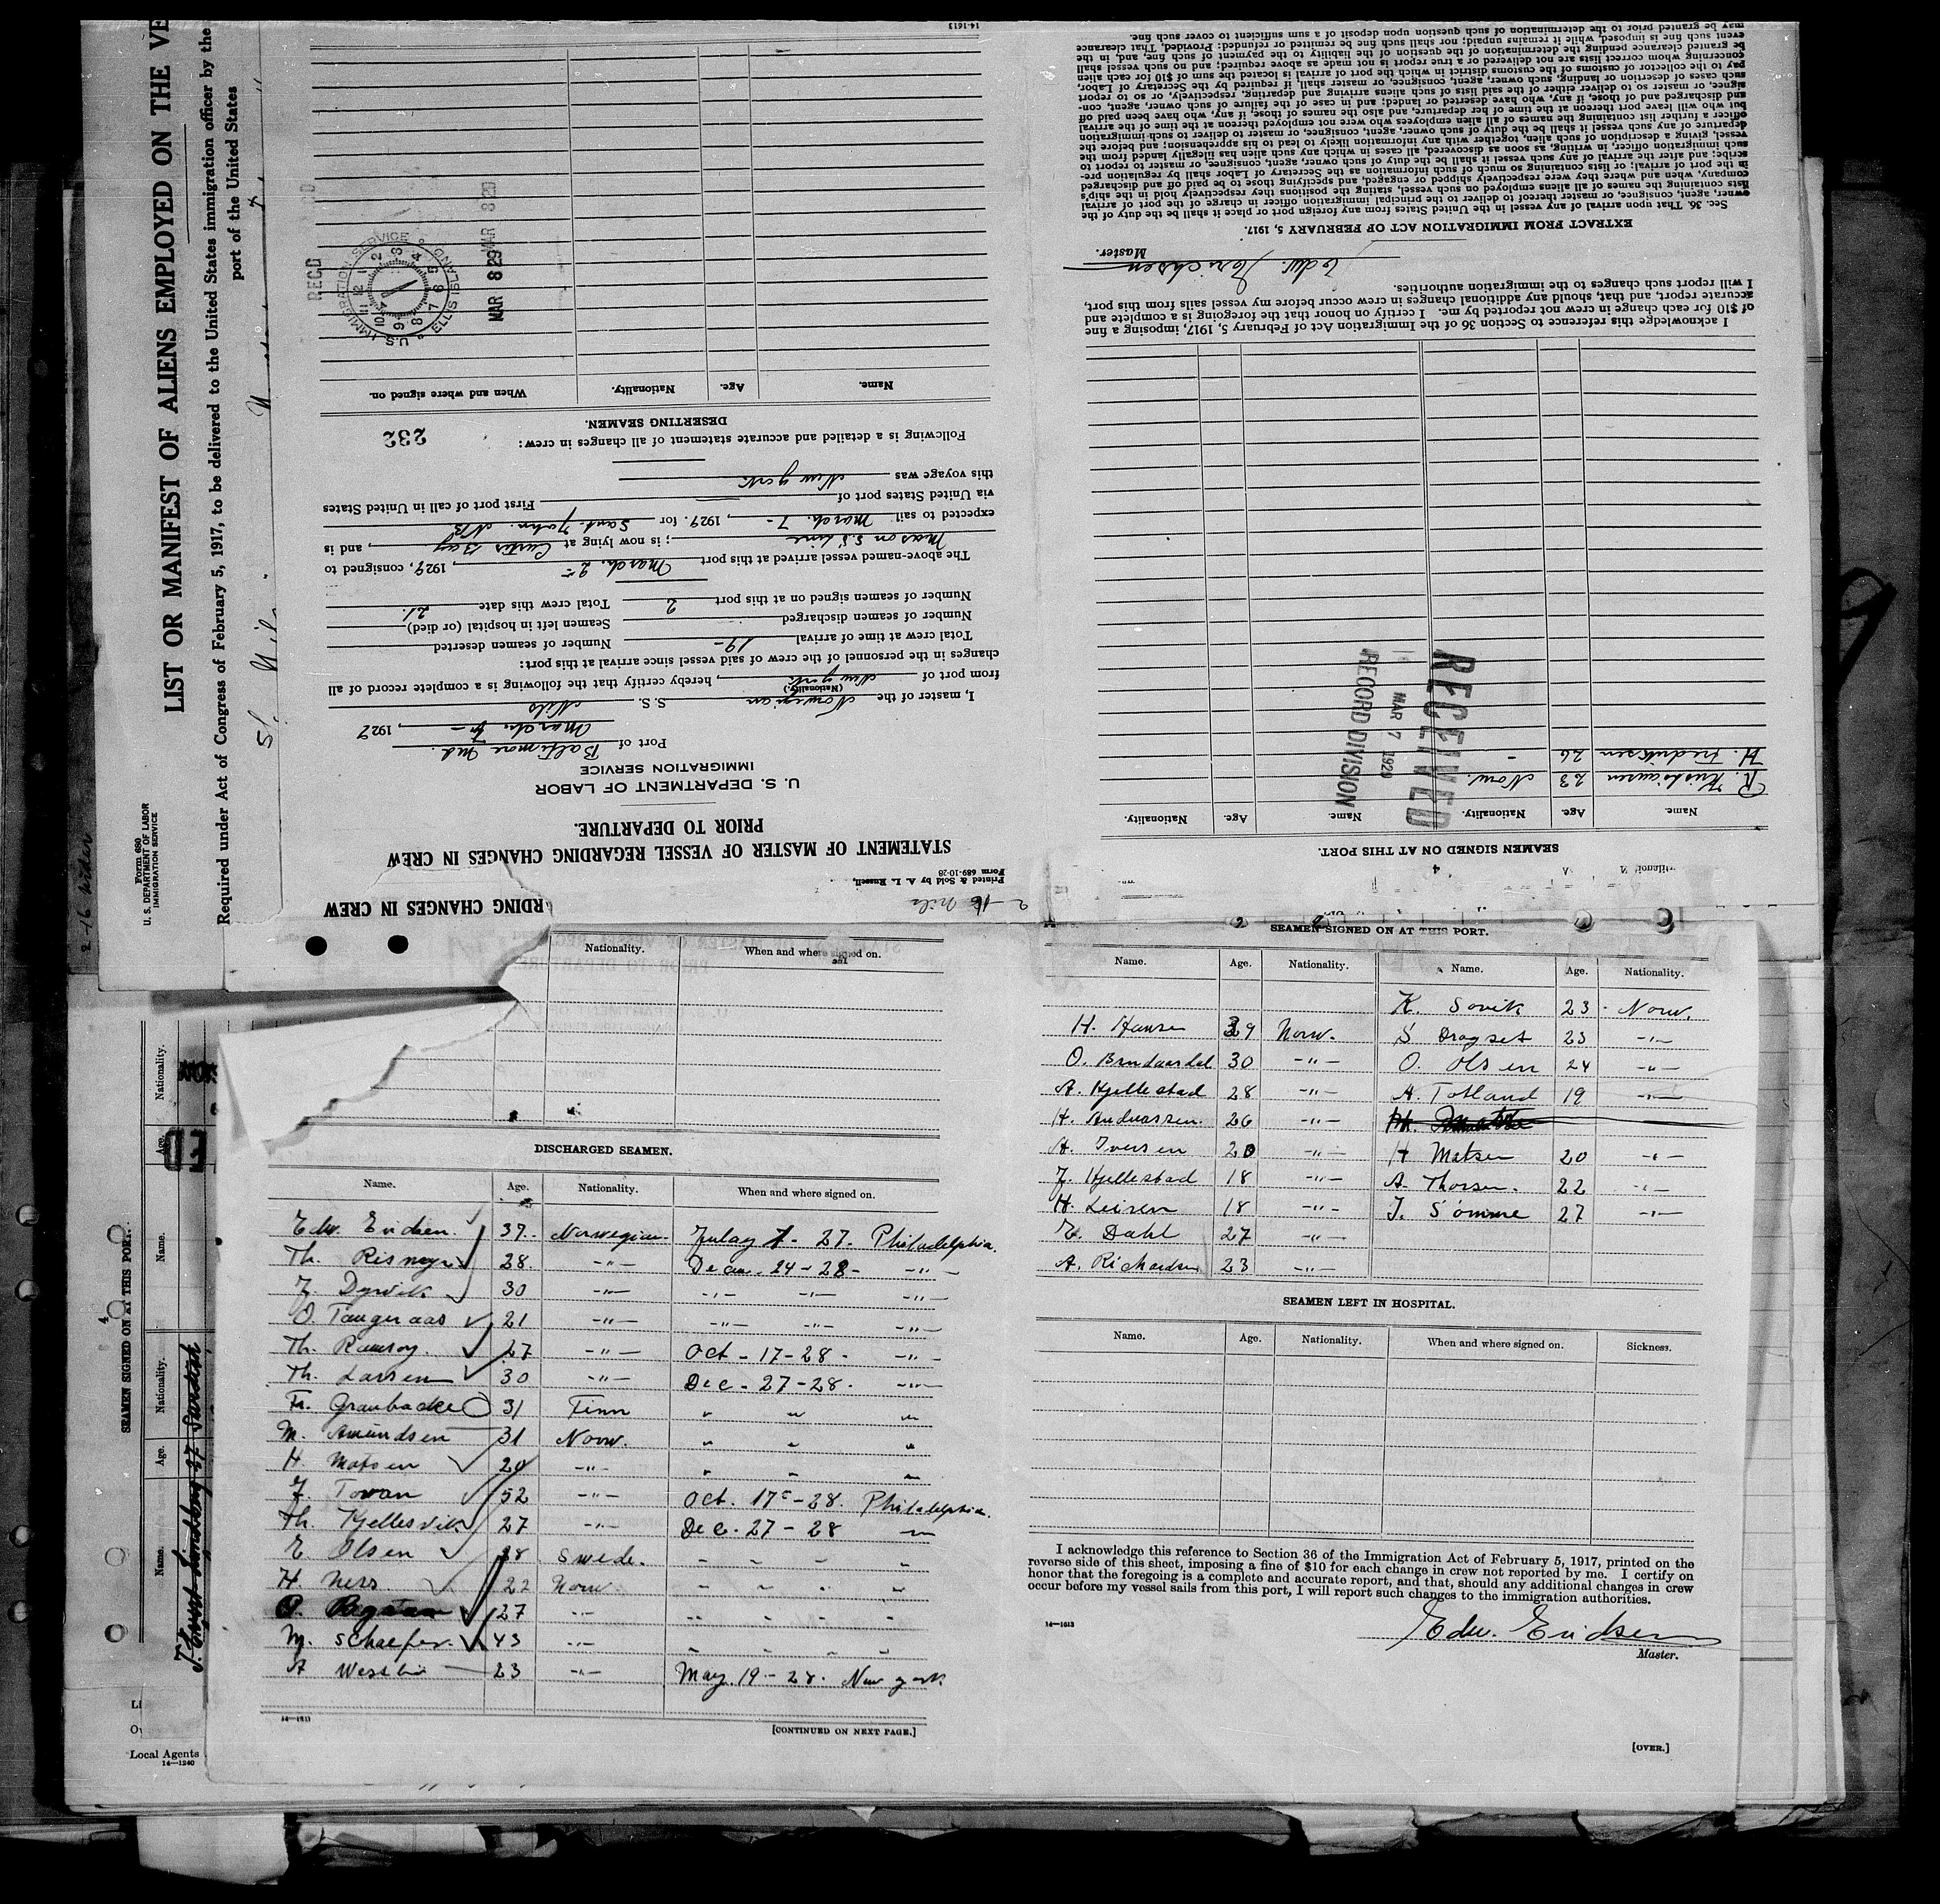 LIST OR MANIFEST OF ALIENS EMPLOYED ON THE VE
Required under Act of Congress of February 5, 1917, to be delivered to the United States immigration officer by the
port of the United States
Form 680
U. S. DEPARTMENT OF LABOR
IMMIGRATION SERVICE
RDING CHANGES IN CREW
Printed & Sold by A. L. Russell,
Form 689-10-28
STATEMENT OF MASTER OF VESSEL REGARDING CHANGES IN CREW
PRIOR TO DEPARTURE.
U. S. DEPARTMENT OF LABOR
IMMIGRATION SERVICE
Port of Baltimore Md.
March 7-, 1929
I, master of the Norwegian S. S. Nils
(Nationality.)
from port of New york, hereby certify that the following is a complete record of all
changes in the personnel of the crew of said vessel since arrival at this port:
Total crew at time of arrival 19- Number of seamen deserted
Number of seamen discharged Seamen left in hospital (or died)
Number of seamen signed on at this port 2 Total crew this date 21.
The above-named vessel arrived at this port March, 1929, consigned to
Mason S.S. Line; is now lying at Curtis Bay, and is
expected to sail March. 7-, 1929. for Saint. John. NB
via United States port of First port of call in United States
this voyage was New york
Following is a detailed and accurate statement of all changes in crew:
232
DESERTING SEAMEN.
Name. Age. Nationality. When and where signed on.
REC'D
U.S. IMMIGRATION SERVICE ELLIS ISLAND
MAR 8 29
14-1613
SEAMEN SIGNED ON AT THIS PORT.
Name. Age. Nationality. Name. Age. Nationality.
R. Kristiansen 23 Norw.
H. Fredriksen 26 -
RECEIVED
MAR 7 1929
RECORD DIVISION
I acknowledge this reference to Section 36 of the Immigration Act of February 5, 1917, imposing a fine
of $10 for each change in crew not reported by me. I certify on honor that the foregoing is a complete and
accurate report, and that, should any additional changes in crew occur before my vessel sails from this port,
I will report such changes to the immigration authorities.
Master.
EXTRACT FROM IMMIGRATION ACT OF FEBRUARY 5, 1917.
Sec. 36. That upon arrival of any vessel in the United States from any foreign port or place it shall be the duty of the
owner, agent, consignee, or master thereof to deliver to the principal immigration officer in charge of the port of arrival
lists containing the names of all aliens employed on such vessel, stating the positions they respectively hold in the ship's
company, when and where they were respectively shipped or engaged, and specifying those to be paid off and discharged
in the port of arrival; or lists containing so much of such information as the Secretary of Labor shall by regulation pre-
scribe; and after the arrival of any such vessel it shall be the duty of such owner, agent, consignee, or master to report to
such immigration officer, in writing, as soon as discovered, all cases in which any such alien has illegally landed from the
vessel, giving a description of such alien, together with any information likely to lead to his apprehension; and before the
departure of any such vessel it shall be the duty of such owner, agent, consignee, or master to deliver to such immigration
officer a further list containing the names of all alien employees who were not employed thereon at the time of the arrival
but who will leave port thereon at the time of her departure, and also the names of those, if any, who have been paid off
and discharged and of those, if any, who have deserted or landed; and in case of the failure of such owner, agent, con-
signee, or master so to deliver either of the said lists of such aliens arriving and departing, respectively, or so to report
such cases of desertion or landing, such owner, agent, consignee, or master shall, if required by the Secretary of Labor,
pay to the collector of customs of the customs district in which the port of arrival is located the sum of $10 for each alien
concerning whom correct lists are not delivered or a true report is not made as above required; and no such vessel shall
be granted clearance pending the determination of the question of the liability to the payment of such fine, and, in the
event such fine is imposed, while it remains unpaid; nor shall such fine be remitted or refunded: Provided, That clearance
may be granted prior to the determination of such question upon deposit of a sum sufficient to cover such fine.
Nationality. When and where signed on.
DISCHARGED SEAMEN.
Name. Age. Nationality. When and where signed on.
Edw. Ericksen. 37. Norwegian. 7- 27. Philadelphia.
Th. Risnoyr 28. -"- Decem. 24-28- -"-
J. Dyrvik 30 -"- -"- -"- -"-
O. Taugeraas 21 -"- -"- -"- -"-
Th. Ramsoy. 27 -"- Oct - 17-28 - -"-
Th. Larsen 30 -"- Dec - 27-28. -"-
Fr. Granbacke 31 Finn " " "
M. Amundsen 31 Norw. " " "
H. Matsen 20 -"- " " "
J. Tovan 52 -"- Oct. 17-28. Philadelphia.
Th. Kjellesvik 27 -"- Dec. 27-28 -"-
E. Olsen 28 Swede. - - -
H. Ness 22 Norw. - - -
27 -"- - - -
M. Schaefer. 43 -"- - - -
A 23 -"- May. 19-28. New york
14-1613
[CONTINUED ON NEXT PAGE.]
SEAMEN SIGNED ON AT THIS PORT.
Name. Age. Nationality. Name. Age. Nationality.
K. Sovik 23 Norw.
H. Hansen 39 Norw. S Dragset 23 -"-
O. Brudaardal 30 -"- O. Olsen 24 -"-
A. Hjellestad 28 -"- A. Totland 19 -"-
H. Andreassen. 26 -"-
A. Iversen 20 -"- H Matsen 20 -"-
J. Hjellestad 18 -"- A. Thorsen. 22 -"-
H. Leiren 18 -"- J. Somme 27 -"-
E. Dahl 27 -"-
A. Richardsen 23 -"-
SEAMEN LEFT IN HOSPITAL.
Name. Age. Nationality. When and where signed on. Sickness.
I acknowledge this reference to Section 36 of the Immigration Act of February 5, 1917, printed on the
reverse side of this sheet, imposing a fine of $10 for each change in crew not reported by me. I certify on
honor that the foregoing is a complete and accurate report, and that, should any additional changes in crew
occur before my vessel sails from this port, I will report such changes to the immigration authorities.
14-1613
Edw. Ericksen
Master.
[OVER.]
SEAMEN SIGNED ON AT THIS PORT.
Name. Age. Nationality. Name. Age. Nationality.
Local Agents
14-1240